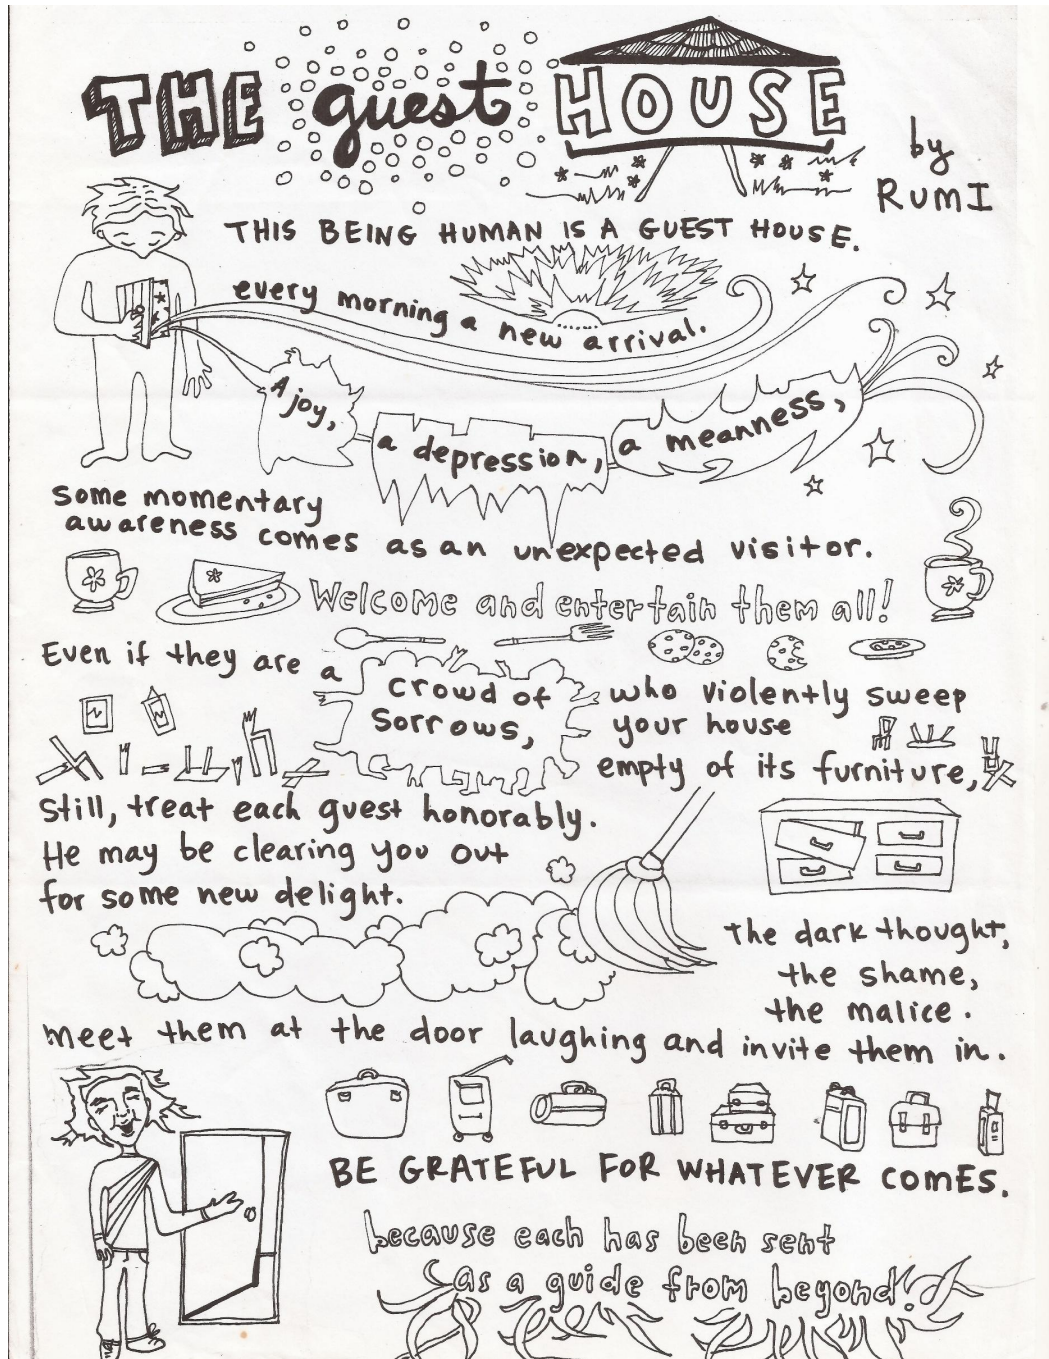 THE guest HOUSE
by
RUMI
THIS BEING HUMAN IS A GUEST HOUSE.
every morning a new arrival.
A joy,
a depression,
a meanness,
some momentary
awareness comes as an unexpected visitor.
Welcome and entertain them all!
Even if they are a
crowd of
sorrows,
who violently sweep
your house
empty of its furniture,
still, treat each guest honorably.
He may be clearing you out
for some new delight.
the dark thought,
the shame,
the malice.
meet them at the door laughing and invite them in.
BE GRATEFUL FOR WHATEVER COMES.
because each has been sent
as a guide from beyond!